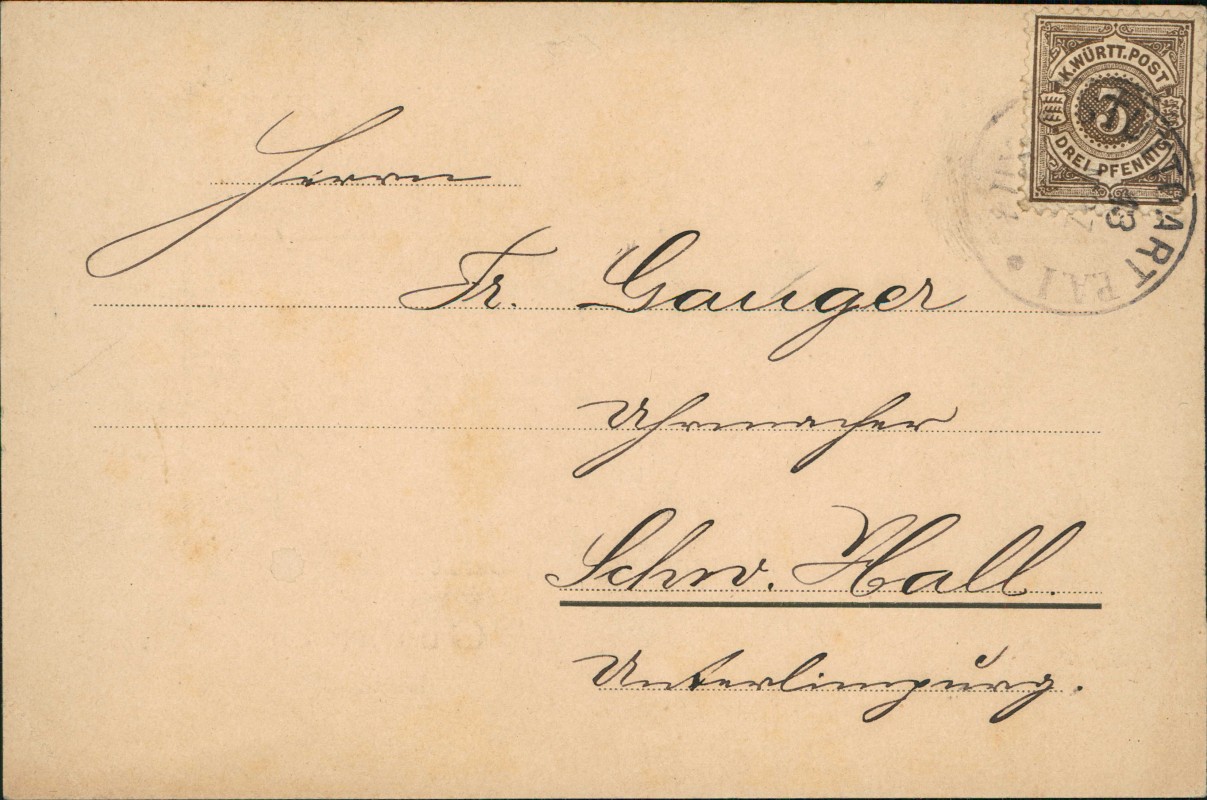 K. WÜRTT. POST
3
DREI PFENNIG
STUTTGART
13
Herrn
Fr. Gauger
Uhrmacher
Schw. Hall.
Unterlimpurg.